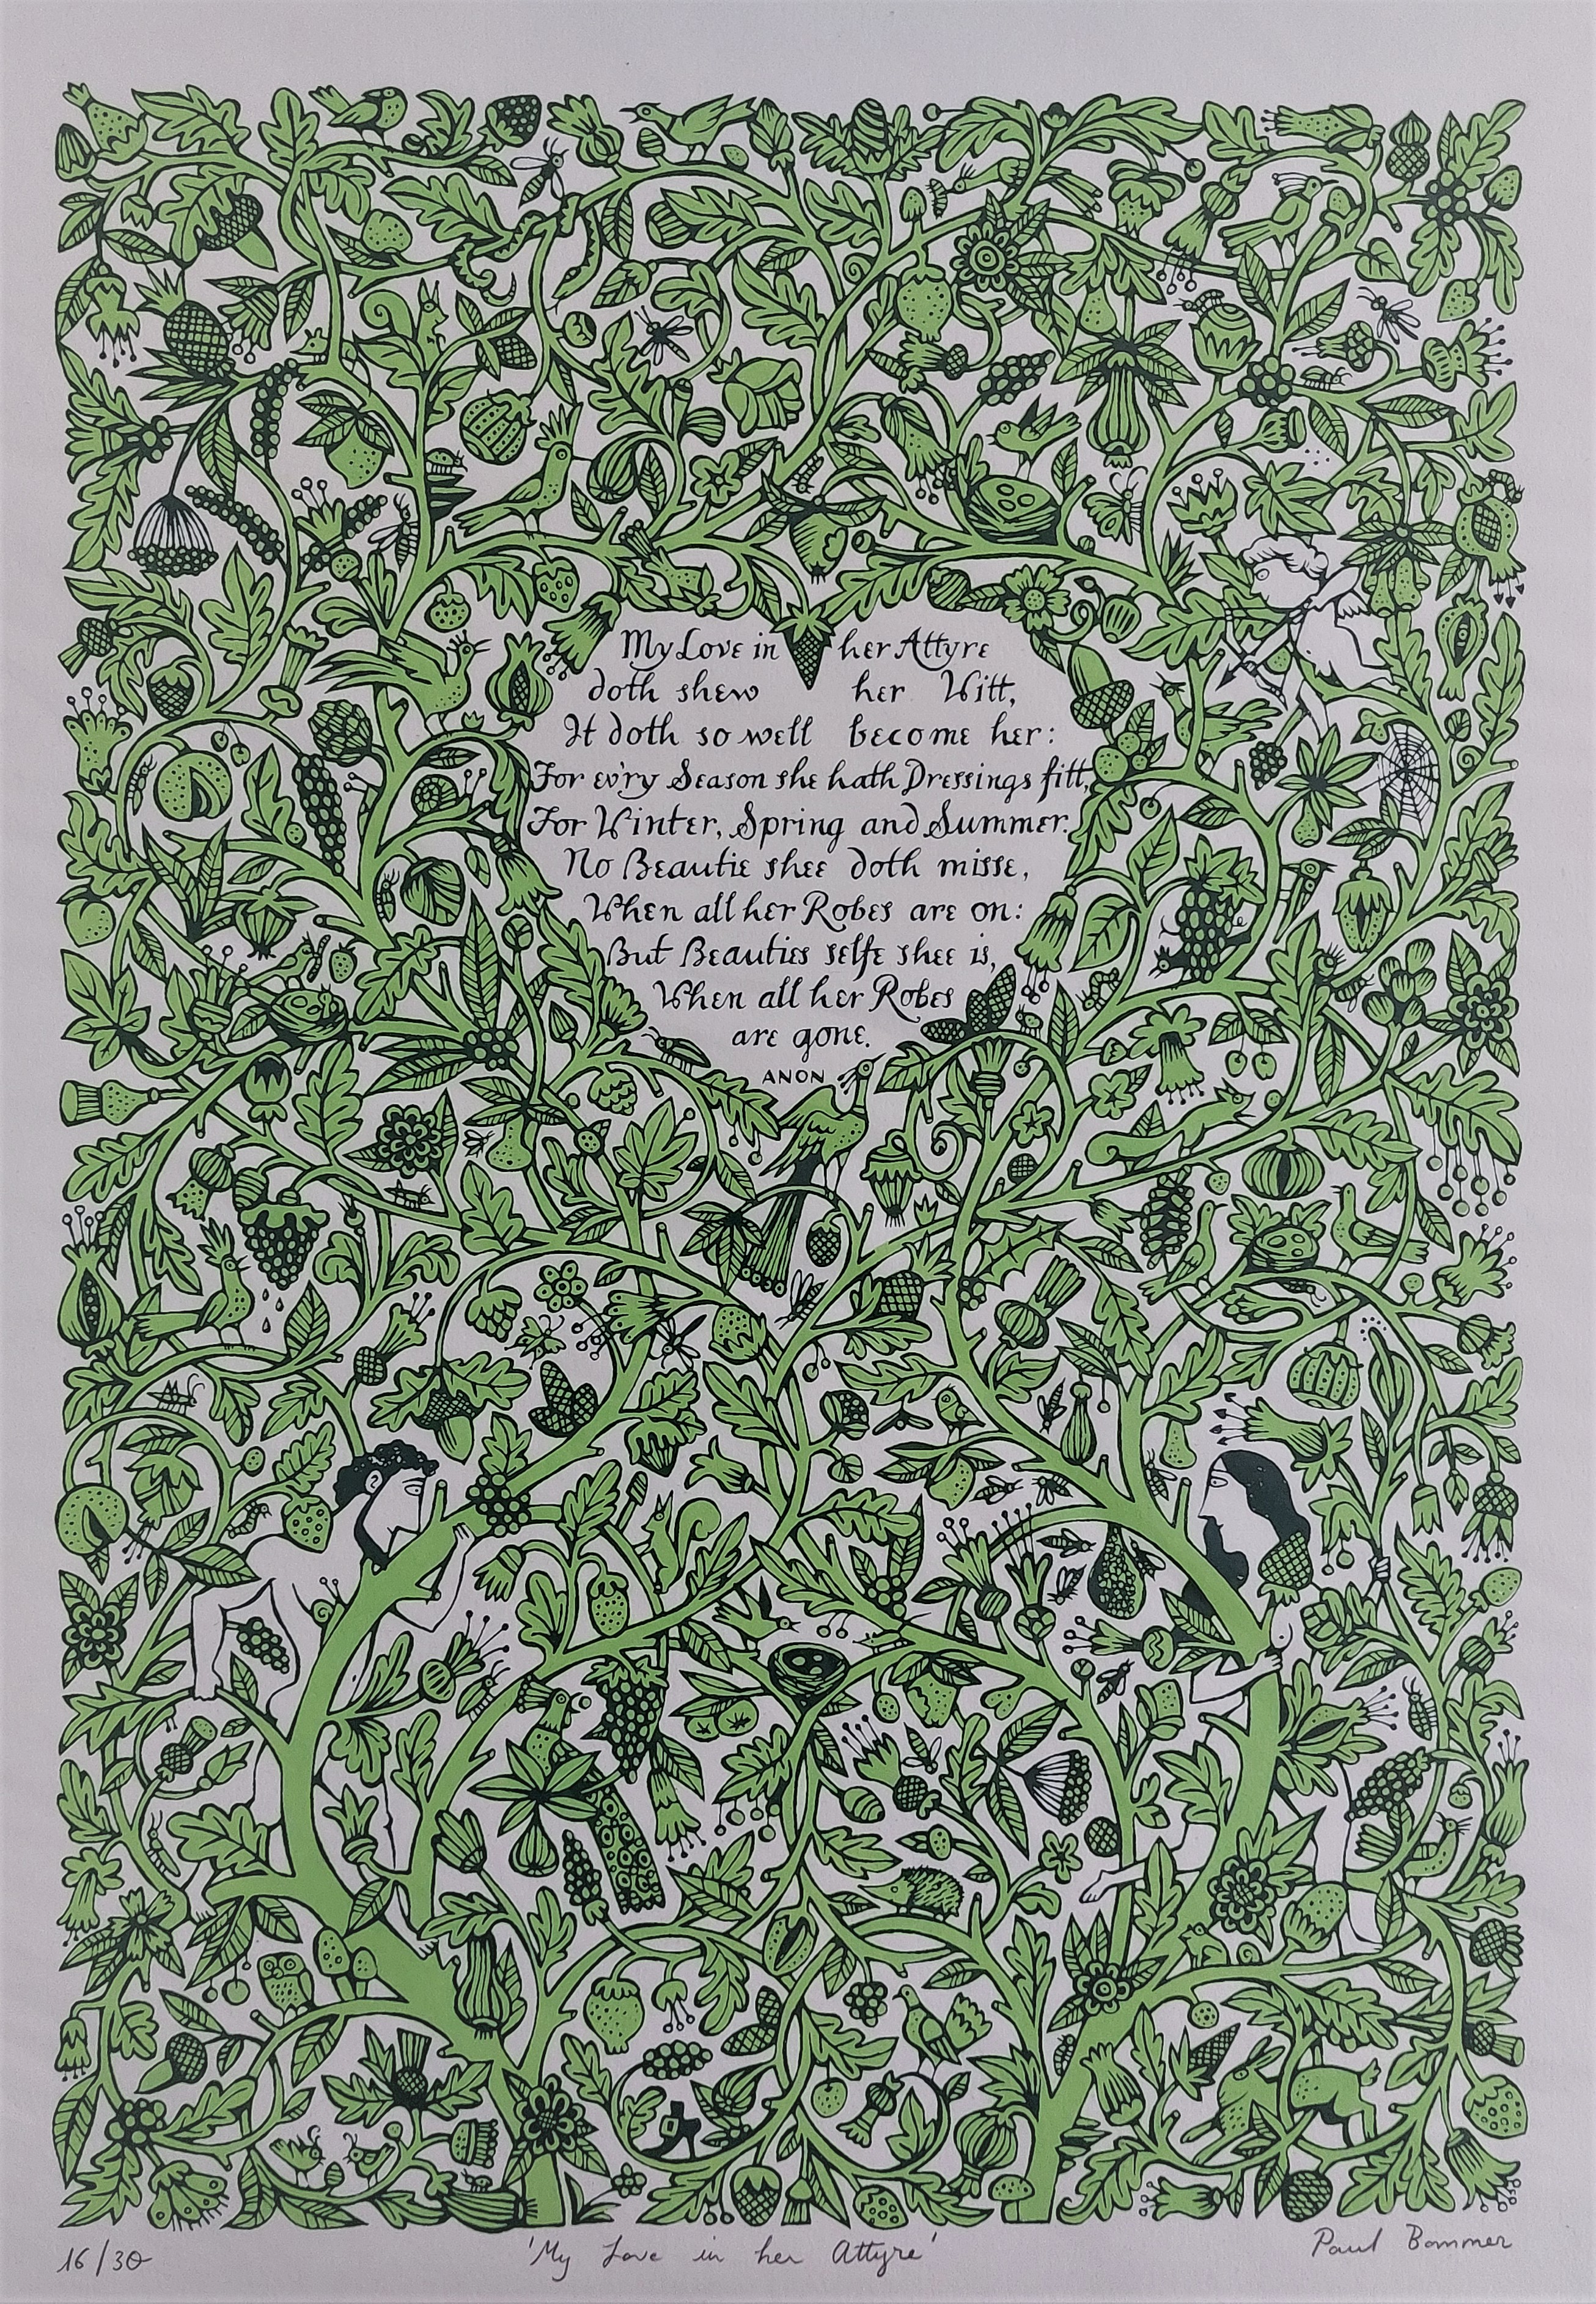 My Love in her Attyre
doth shew her Witt,
It doth so well become her:
For ev'ry Season she hath Dressings fitt,
For Winter, Spring and Summer.
No Beautie shee doth misse,
When all her Robes are on:
But Beauties selfe shee is,
When all her Robes
are gone.
ANON
16/30 'My Love in her Attyre' Paul Bommer